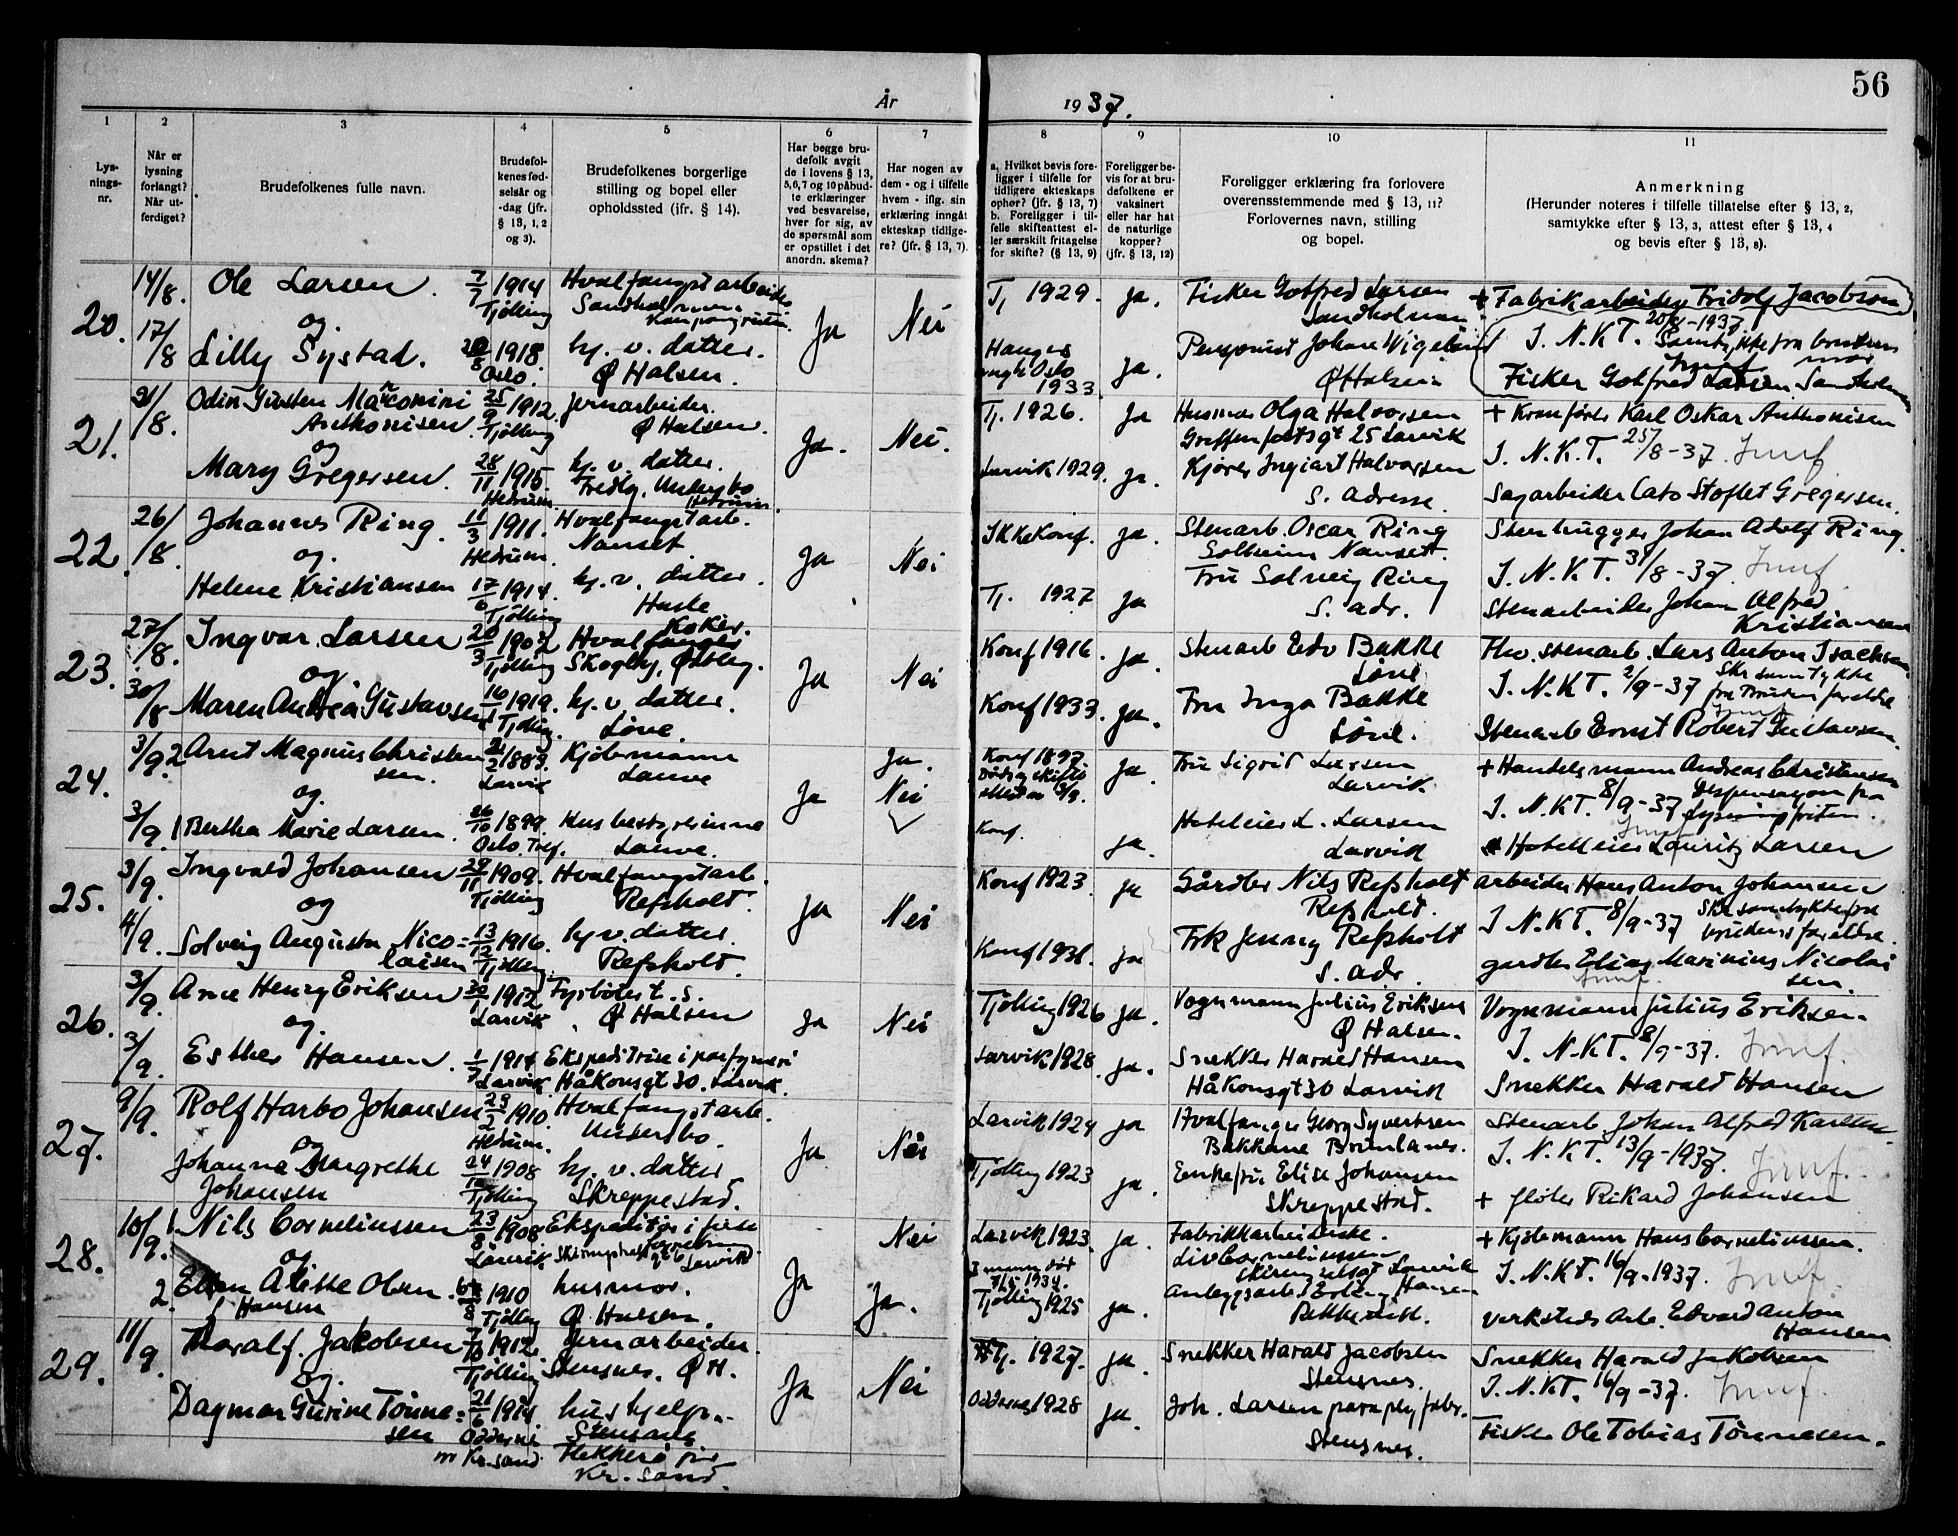 56
År 1937.
1 2 3 4 5 6 7 8 9 10 11
Lys-
nings-
nr.
Når er
lysning
forlangt?
Når ut-
ferdiget?
Brudefolkenes fulle navn.
Brudefol-
kenes fød-
selsår og
-dag (jfr.
§ 13, 1, 2
og 3).
Brudefolkenes borgerlige
stilling og bopel eller
opholdssted (ifr. § 14).
Har begge bru-
defolk avgit
de i lovens § 13,
5, 6, 7 og 10 påbud-
te erklæringer
ved besvarelse,
hver for sig, av
de spørsmål som
er opstillet i det
anordn. skema?
Har nogen av
dem - og i tilfelle
hvem - iflg. sin
erklæring inngått
ekteskap tidlige-
re? (jfr. § 13, 7).
a. Hvilket bevis fore-
ligger i tilfelle for
tidligere ekteskaps
ophør? (jfr. § 13, 7)
b. Foreligger i til-
felle skifteattest el-
ler særskilt fritagelse
for skifte? (§ 13, 9)
Foreligger be-
vis for at bru-
defolkene er
vaksinert
eller har hat
de naturlige
kopper?
(jfr. § 13, 12)
Foreligger erklæring fra forlovere
overensstemmende med § 13, 11?
Forlovernes navn, stilling
og bopel.
Anmerkning
(Herunder noteres i tilfelle tillatelse efter § 13, 2,
samtykke efter § 13, 3, attest efter § 13, 4
og bevis efter § 13, 8).
20. 14/8. Ole Larsen. 7/7 1914 Hvalfangstarbeider
Tjølling
og
17/8 Lilly Systad. 1918. hj. v. datter.
Oslo. Ø Halsen.
Ja Nei
Tj 1929. Ja. Fisker Gotfred Larsen
+ Fabrikarbeider Fridolf Jacobson
I. N. K. T. 20/8-1937
Oslo
1933. Ja. Pensjonist Johan Vigeland
Ø Halsen
Fisker Gotfred Larsen
21. 21/8. Odin Gusten Marconini 25/9 1912. Jernarbeider.
Anthonisen. Tjølling Ø Halsen.
og
Mary Gregersen. 28/11 1915. hj. v. datter.
Hedrum. Fredly, Undersbo
Hedrum.
Ja. Nei.
Tj. 1926. Ja Husmor Olga Halvorsen
gt 25 Larvik
+ Kranfører Karl Oskar Anthonisen
I. N. K. T. 25/8-37.
Larvik 1929. Ja. Kjører Ingvart Halvorsen
s. adresse
Sagarbeider Cato Stoflet Gregersen.
22. 26/8. Johannes Ring. 11/3 1911. Hvalfangstarb.
Hedrum. Nanset.
og.
Helene Kristiansen 17/6 1914. hj. v. datter.
Tjølling Huste
Ja Nei
IkkeKonf. Ja. Stenarb. Oscar Ring
Solheim Nanset.
Stenhugger Johan Adolf Ring.
I. N. K. T. 31/8-37.
Tj. 1927 Ja Fru Solveig Ring
s. adr.
Stenarbeider Johan Alfred
Kristiansen
23. 27/8. Ingvar Larsen 20/3 1902 Koker.
Tjølling Skogly, Østby.
og.
30/8 Maren Andrea Gustavsen 1919. hj. v. datter.
Tjølling. Løve.
Ja Nei
Konf 1916. Ja. Stenarb Edv Bakke
Løve
stenarb. Lars Anton Isachsen
I. N. K. T. 2/9-37 Skr samtykke
Konf 1933. Ja. Fru Inga Bakke
Løve.
Stenarb Ernst Robert Gustavsen.
24. 3/9. 2 Arnt Magnus Christen- 1883. Kjøbmann
sen. Larvik Lauve
og.
3/9. 1 Bertha Marie Larsen. 26/10 1899. Husbestyrerinne
Oslo. Lauve.
Ja. Ja Nei
Konf 1897. Ja. Fru Sigrid Larsen
Larvik
+ Handelsmann Andreas Christensen
I. N. K. T. 8/9-37 Dispensasjon fra
lysningsfristen.
Konf. Ja. Hoteleier L. Larsen
Larvik
Hotelleier Lauritz Larsen
25. 3/9. Ingvald Johansen 29/11 1909. Hvalfangstarb.
Tjølling Refsholt.
og
4/9. Solveig Augusta Nico= 13/12 1916. hj v. datter.
laisen Tjølling. Refsholt.
Ja Nei
Konf 1923. Ja Gårdbr Nils Refsholt
Refsholt.
Arbeider Hans Anton Johansen
I N. K T. 8/9-37 Skr samtykke fra
brudens foreldre.
Konf 1931. Ja Frk Jenny Refsholt
s. adr.
gardbr Elias Marinius Nicolai
sen.
26. 3/9. Arne Henry Eriksen 30/1 1912 Fyrbøter t. s.
Larvik Ø Halsen
og.
3/9. Esther Hansen. 1914 Ekspeditrise i parfymeri
Larvik Håkonsgt 30. Larvik.
Ja Nei
Tjølling 1926 Ja. Vognmann Julius Eriksen
Ø Halsen.
Vognmann Julius Eriksen.
I. N. K T. 8/9-37.
Larvik 1928. Ja. Snekker Harald Hansen
Håkonsgt 30 Larvik
Snekker Harald Hansen
27. 9/9. Rolf Harbo Johansen 23/2 1910. Hvalfangstarb.
Hedrum. Undersbo.
og
Johanna Margrethe 24/ 1908 hj. v. datter
Johansen Tjølling Skreppestad.
Ja Nei
Larvik 1924 Ja Hvalfanger Georg Syvertsen
Bakkane Brunlanes.
Stenarb Johan Alfred Karlsen
I. N. K T. 13/9-1937.
Tjølling 1923 Ja. Enkefru Elise Johansen
Skreppestad.
+ fløter Rikard Johansen
28. 10/9. 1. Nils Corneliussen 23/8 1908. Ekspeditør i
Larvik
og
2. Ellen Alette Olsen. 1910 husmor.
f Hansen Tjølling Ø Halsen.
Nei Ja Ja.
Larvik 1923. Ja. Fabrikkarbeiderske.
Liv Corneliussen
Larvik
+ Kjøbmann Hans Corneliussen.
I. N. K T. 16/9-1937.
1934.
Tjølling 1925 Ja. Anleggsarb Erling Hansen
Verksteds Arb. Edvard Anton
Hansen
29. 11/9. Thoralf. Jakobsen 7/10 1912 Jernarbeider.
Tjølling Stensnes. Ø H.
og.
Dagmar Gurine Tønne= 21/6 1914 hushjelp.
sen Oddernes Stensnes
Kr. sand Flekkerø
Kr. sand.
Ja Nei
Tj. 1927. Ja. Snekker Harald Jacobsen
Stensnes.
Snekker Harald Jakobsen
I. N. K T. 16/9-37.
Oddernes 1928 Ja. Joh. Larsen paraplyfabr.
Stensnes.
Fisker Ole Tobias Tønnesen.